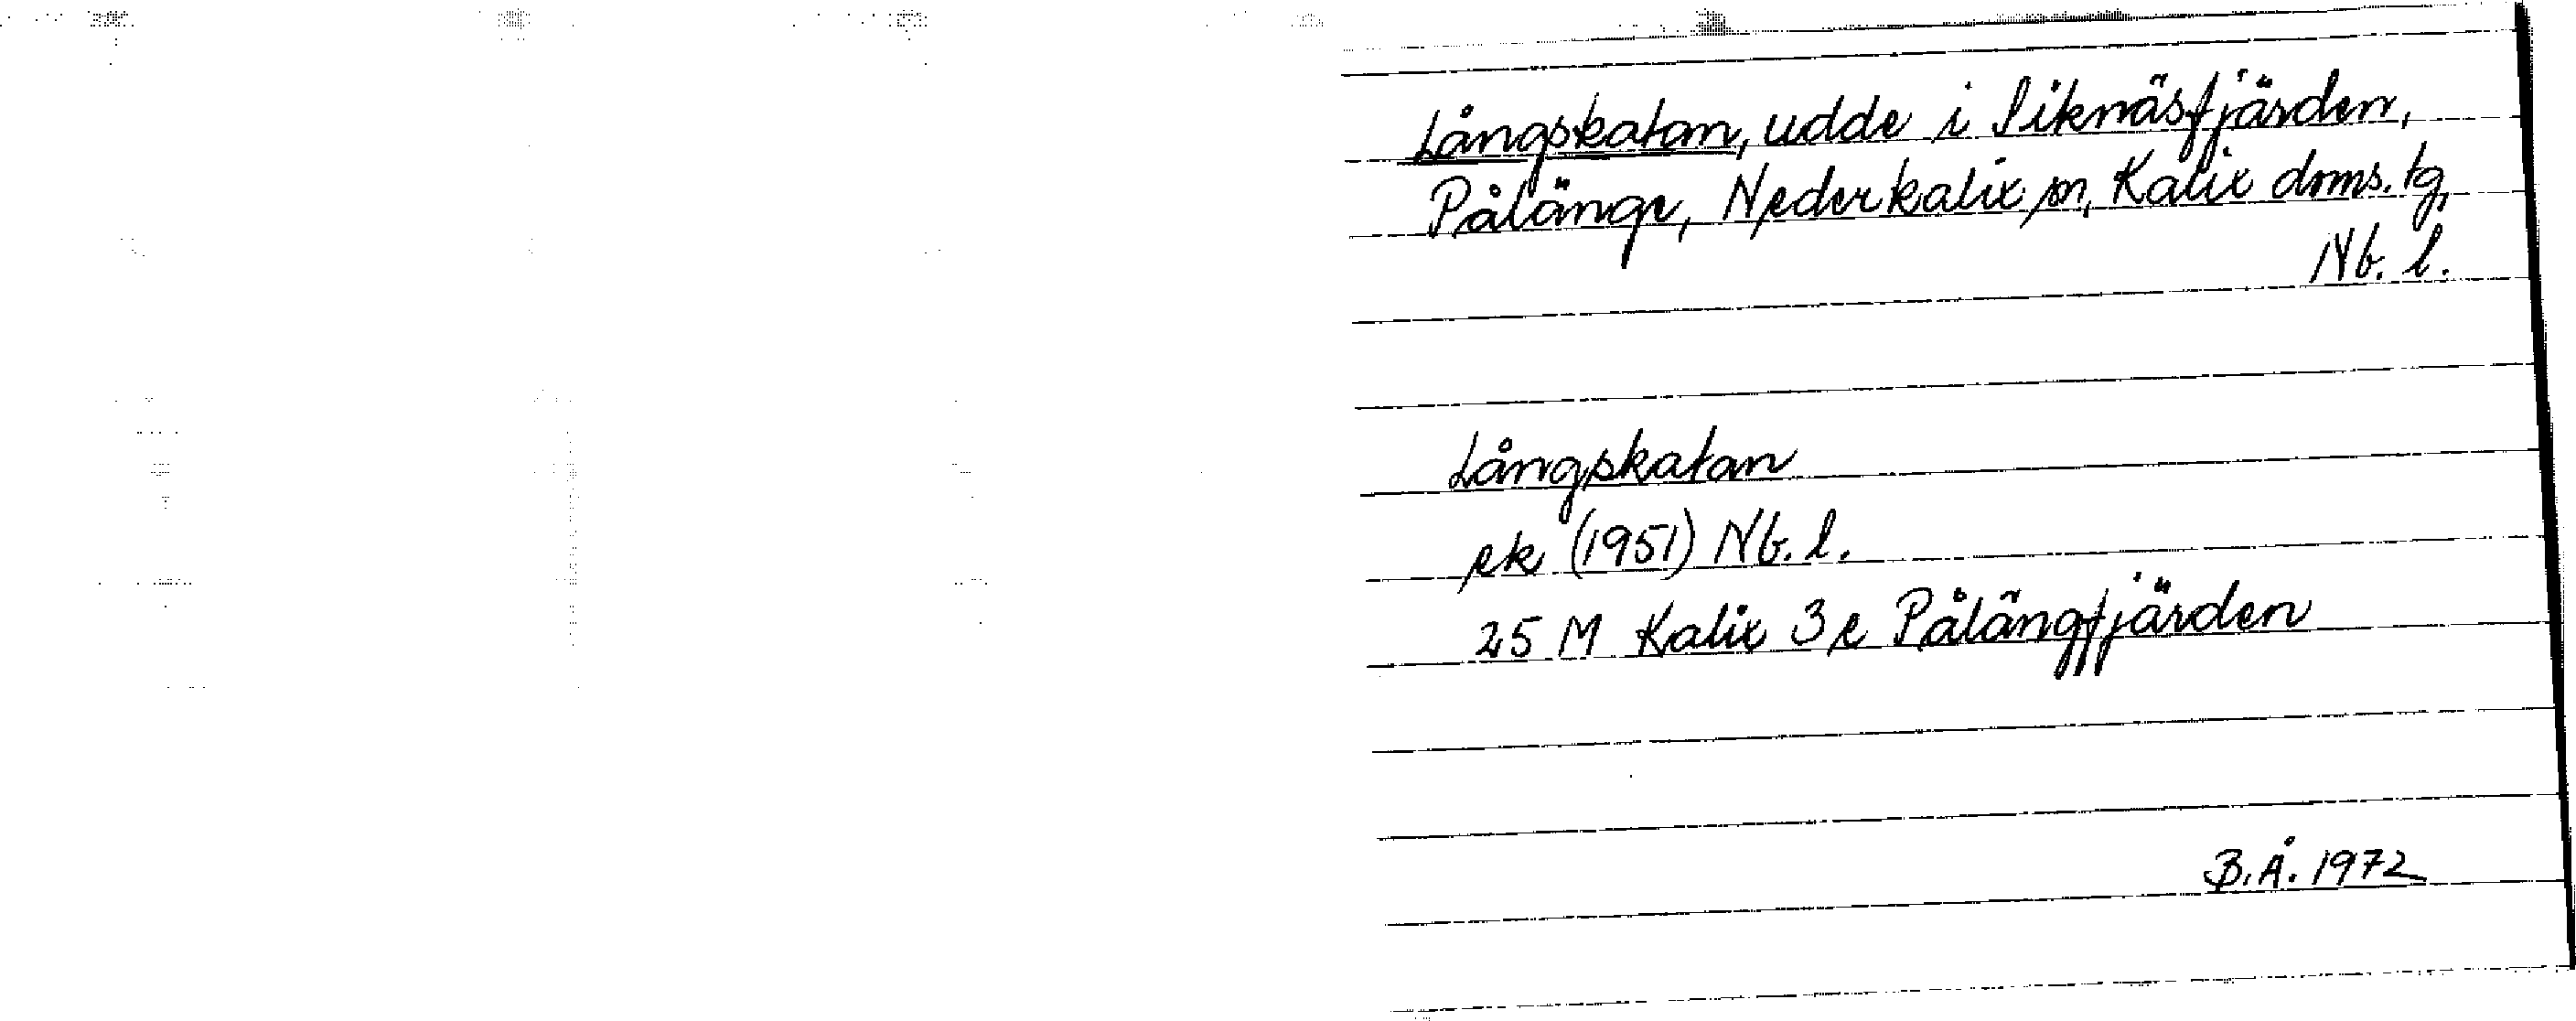 Långskatan, udde i Siknäsfjärden,
Pålänge, Nederkalix sn, Kalix doms. tg,
Nb. l.
Långskatan
ek (1951) Nb. l.
25 M Kalix 3 e Pålängfjärden
B.Å. 1972